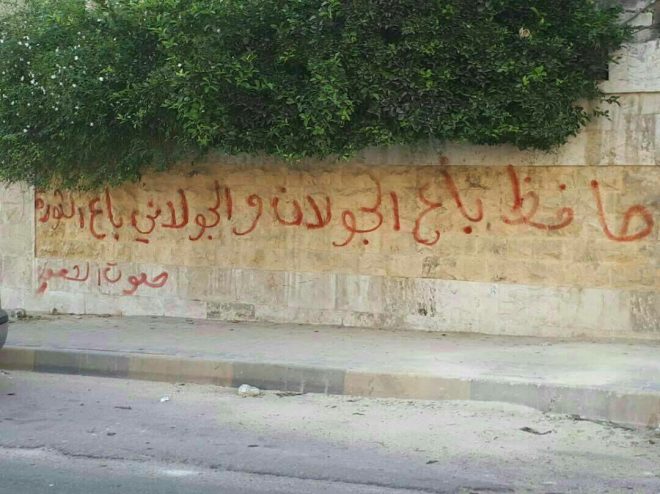 حافظ باع الجولان والجولاني باع الثورة
صوت الشعب